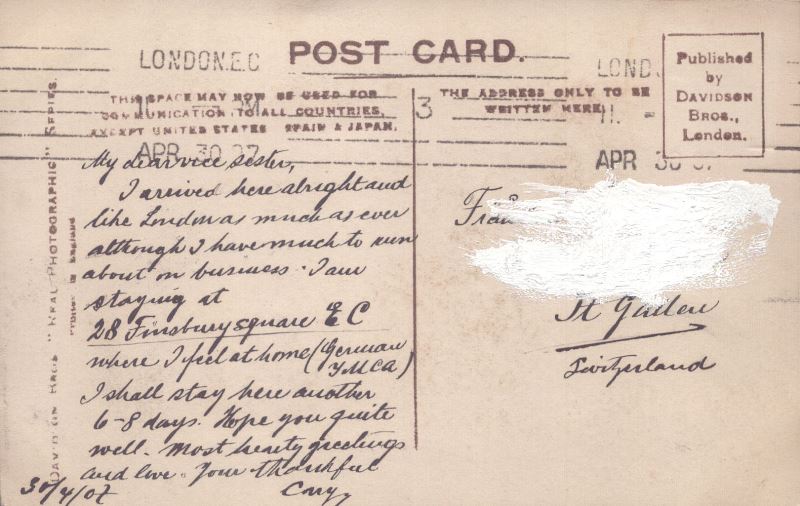 LONDON.E.C
POST CARD.
THIS SPACE MAY NOW BE USED FOR
COMMUNICATION TO ALL COUNTRIES,
EXCEPT UNITED STATES SPAIN & JAPAN.
APR 30 07
3
THE ADDRESS ONLY TO BE
WRITTEN HERE
LOND
11. -
APR 30 07
Published
by
DAVIDSON
BROS.,
London.
DAVIDSON BROS "REAL PHOTOGRAPHIC" SERIES.
My dear nice sister,
I arrived here alright and
like London as much as ever
although I have much to run
about on business. I am
staying at
28 Finsbury square E C
where I feel at home (German
YMCA)
I shall stay here another
6-8 days. Hope you quite
well. Most hearty greetings
and love. Your thankful
30/4/07
St Gallen
Switzerland